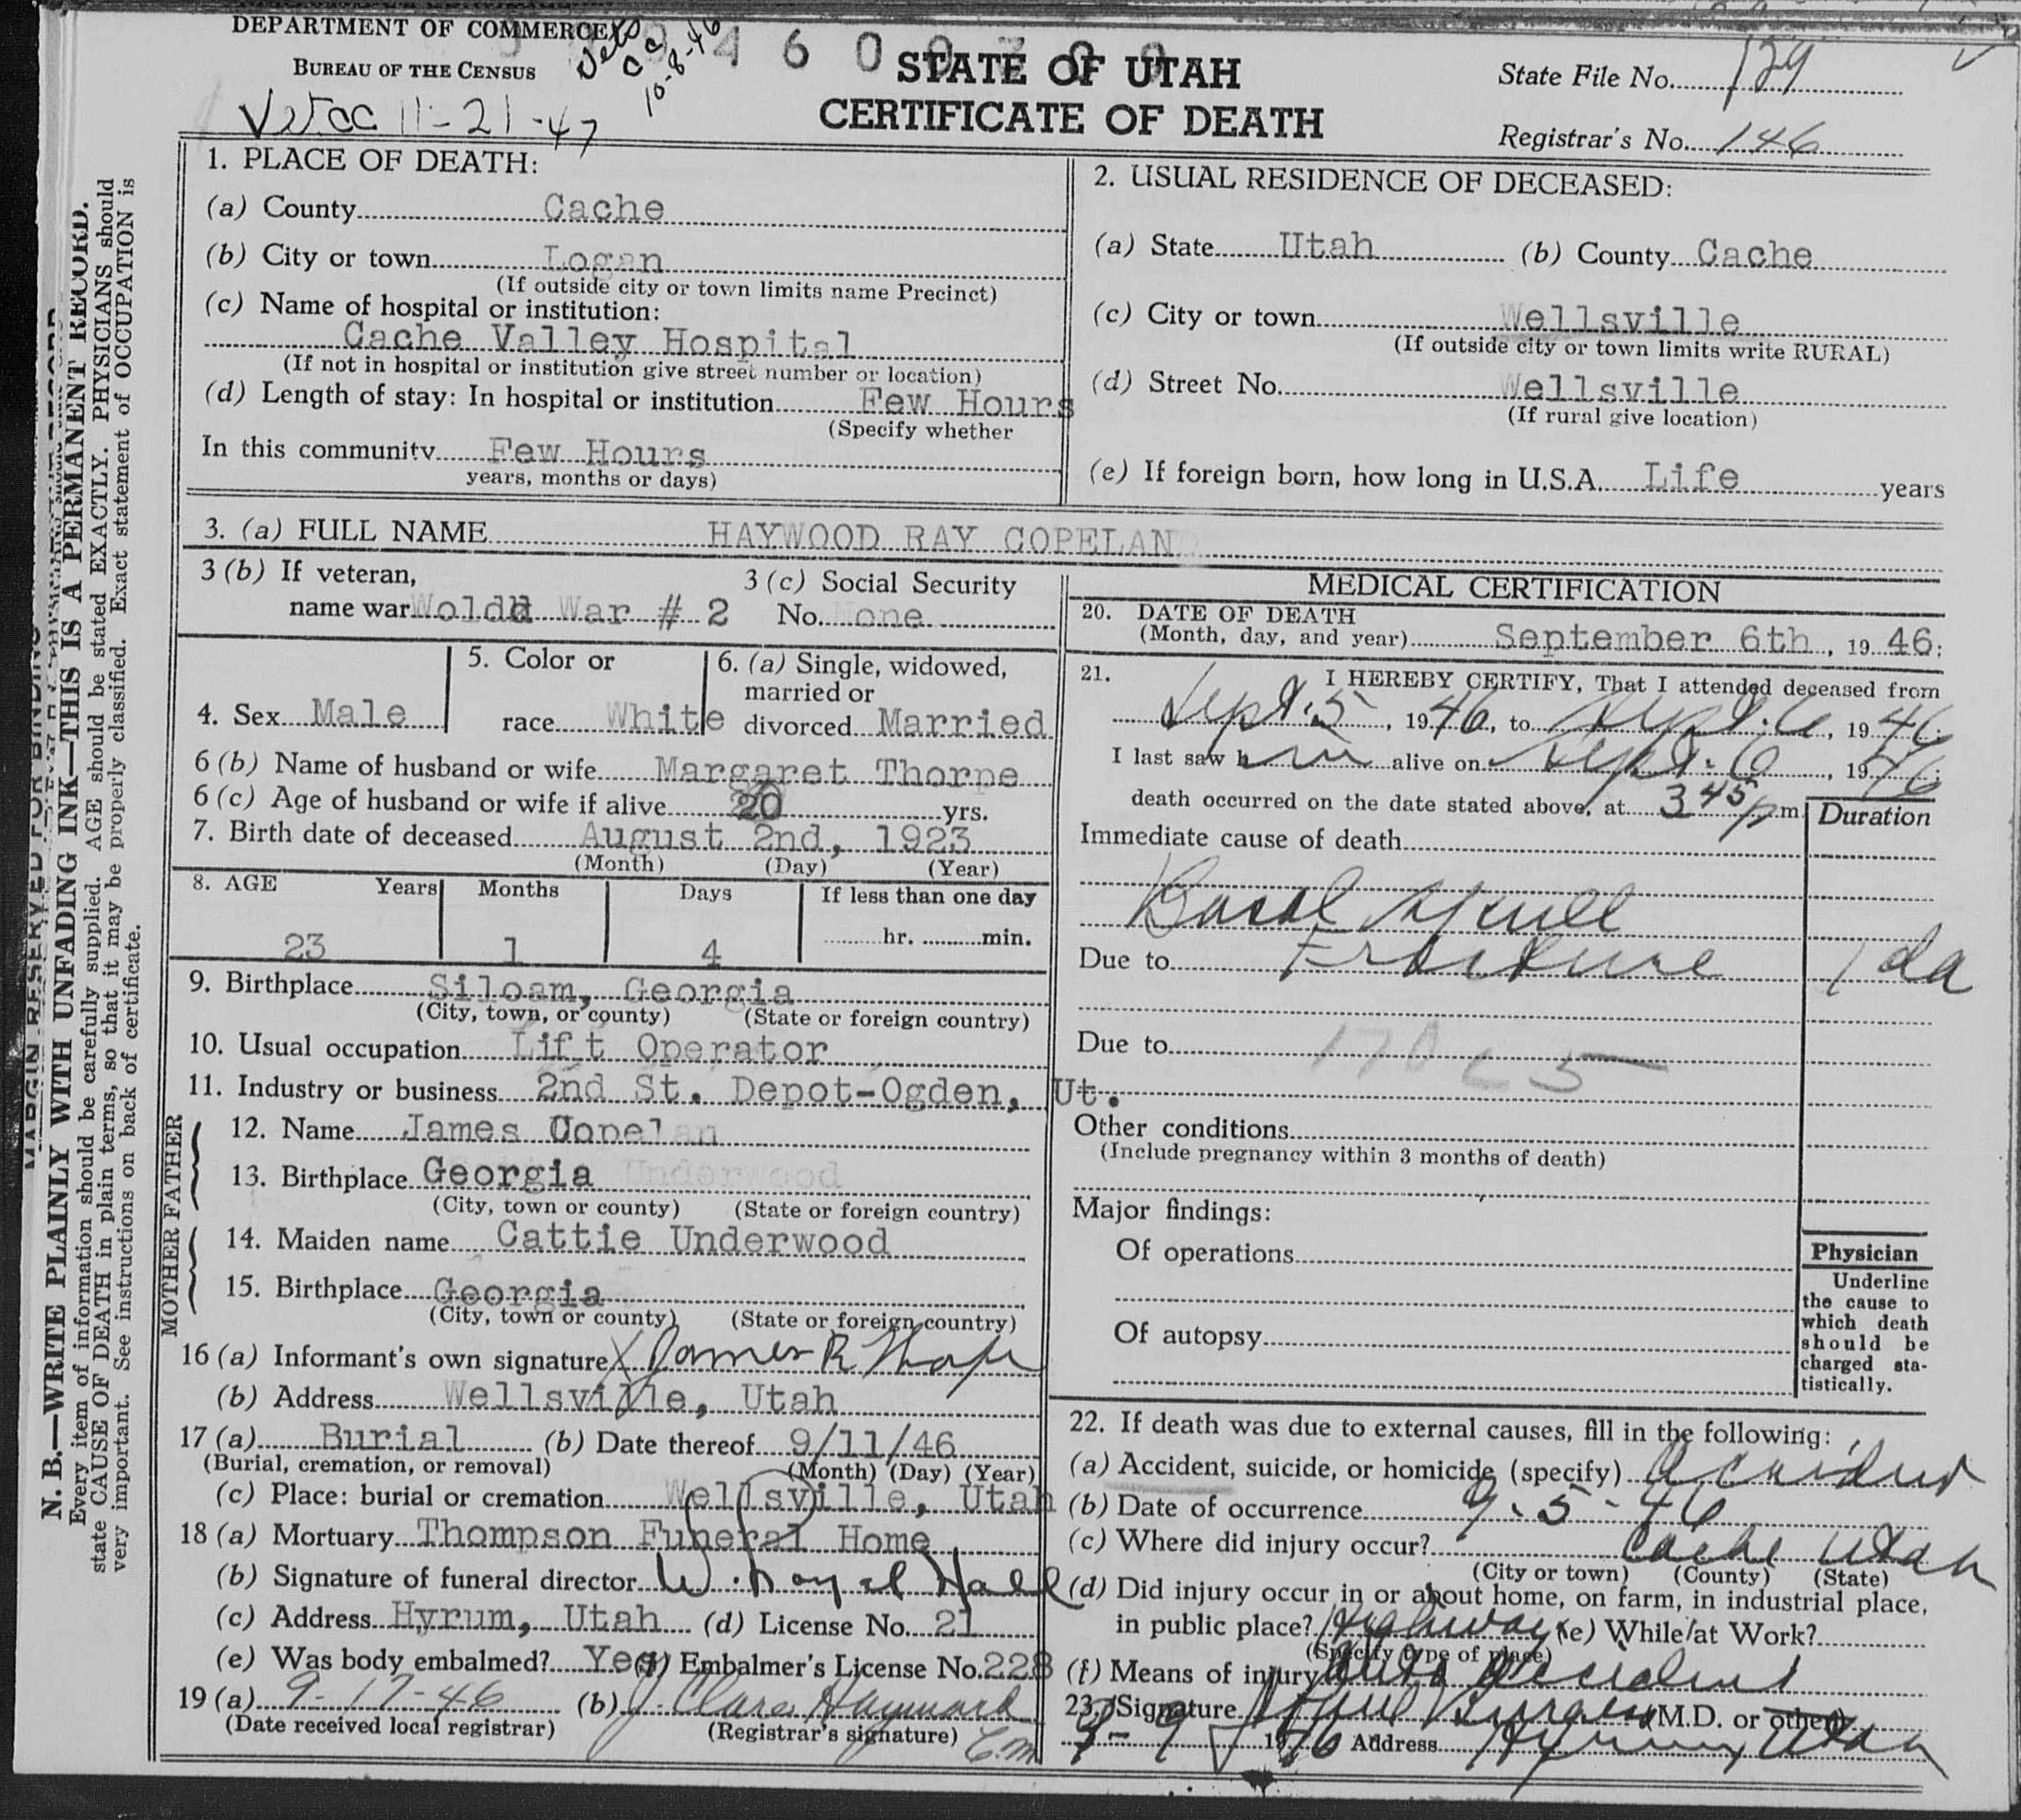 DEPARTMENT OF COMMERCE
BUREAU OF THE CENSUS
10-8-46
11-21-47
STATE OF UTAH
CERTIFICATE OF DEATH
State File No. 129
Registrar's No. 146
1. PLACE OF DEATH:
(a) County Cache
(b) City or town Logan
(If outside city or town limits name Precinct)
(c) Name of hospital or institution:
Cache Valley Hospital
(If not in hospital or institution give street number or location)
(d) Length of stay: In hospital or institution Few Hours
(Specify whether
In this community Few Hours
years, months or days)
2. USUAL RESIDENCE OF DECEASED:
(a) State Utah (b) County Cache
(c) City or town Wellsville
(If outside city or town limits write RURAL)
(d) Street No. Wellsville
(If rural give location)
(e) If foreign born, how long in U.S.A. Life years
3. (a) FULL NAME HAYWOOD RAY COPELAN
3 (b) If veteran,
name war Woldd War # 2
3 (c) Social Security
No. None
4. Sex Male
5. Color or
race White
6. (a) Single, widowed,
married or
divorced Married
6 (b) Name of husband or wife Margaret Thorpe
6 (c) Age of husband or wife if alive 20 yrs.
7. Birth date of deceased August 2nd, 1923
(Month) (Day) (Year)
8. AGE Years Months Days If less than one day
23 1 4 hr. min.
9. Birthplace Siloam, Georgia
(City, town, or county) (State or foreign country)
10. Usual occupation Lift Operator
11. Industry or business 2nd St. Depot-Ogden, Ut.
FATHER
12. Name James Copelan
13. Birthplace Georgia Underwood
(City, town or county) (State or foreign country)
MOTHER
14. Maiden name Cattie Underwood
15. Birthplace Georgia
(City, town or county) (State or foreign country)
16 (a) Informant's own signature X James R Thorpe
(b) Address Wellsville, Utah
17 (a) Burial (b) Date thereof 9/11/46
(Burial, cremation, or removal) (Month) (Day) (Year)
(c) Place: burial or cremation Wellsville, Utah
18 (a) Mortuary Thompson Funeral Home
(b) Signature of funeral director W. Loyal Hall
(c) Address Hyrum, Utah (d) License No. 21
(e) Was body embalmed? Yes (f) Embalmer's License No. 228
19 (a) 9-17-46 (b) J. Clare Hayward
(Date received local registrar) (Registrar's signature)
MEDICAL CERTIFICATION
20. DATE OF DEATH
(Month, day, and year) September 6th, 19 46;
21. I HEREBY CERTIFY, That I attended deceased from
Sept. 5, 1946, to Sept. 6, 1946;
I last saw him alive on Sept. 6, 1946;
death occurred on the date stated above, at 3 45 p m. Duration
Immediate cause of death
Basal Skull
Due to Fracture 1 da
Due to 170 c 5
Other conditions
(Include pregnancy within 3 months of death)
Major findings:
Of operations
Of autopsy
Physician
Underline
the cause to
which death
should be
charged sta-
tistically.
22. If death was due to external causes, fill in the following:
(a) Accident, suicide, or homicide (specify) Accident
(b) Date of occurrence 9-5-46
(c) Where did injury occur? Cache Utah
(City or town) (County) (State)
(d) Did injury occur in or about home, on farm, in industrial place,
in public place? Highway (e) While at Work?
(Specify type of place)
(f) Means of injury Auto Accident
23. Signature M.D. or other
9-9 1946 Address Hyrum, Utah
MARGIN RESERVED FOR BINDING
N. B.—WRITE PLAINLY WITH UNFADING INK—THIS IS A PERMANENT RECORD.
Every item of information should be carefully supplied. AGE should be stated EXACTLY. PHYSICIANS should
state CAUSE OF DEATH in plain terms, so that it may be properly classified. Exact statement of OCCUPATION is
very important. See instructions on back of certificate.